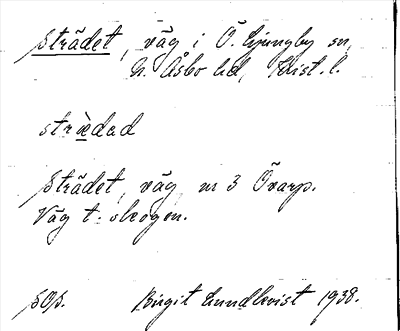 Strädet, väg i Ö. Ljungby sn,
N. Åsbo hd, Krist. l.
strädad
Strädet, väg, nr 3 Övarp.
Väg t. skogen.
SOS. Birgit Lundkvist 1938.